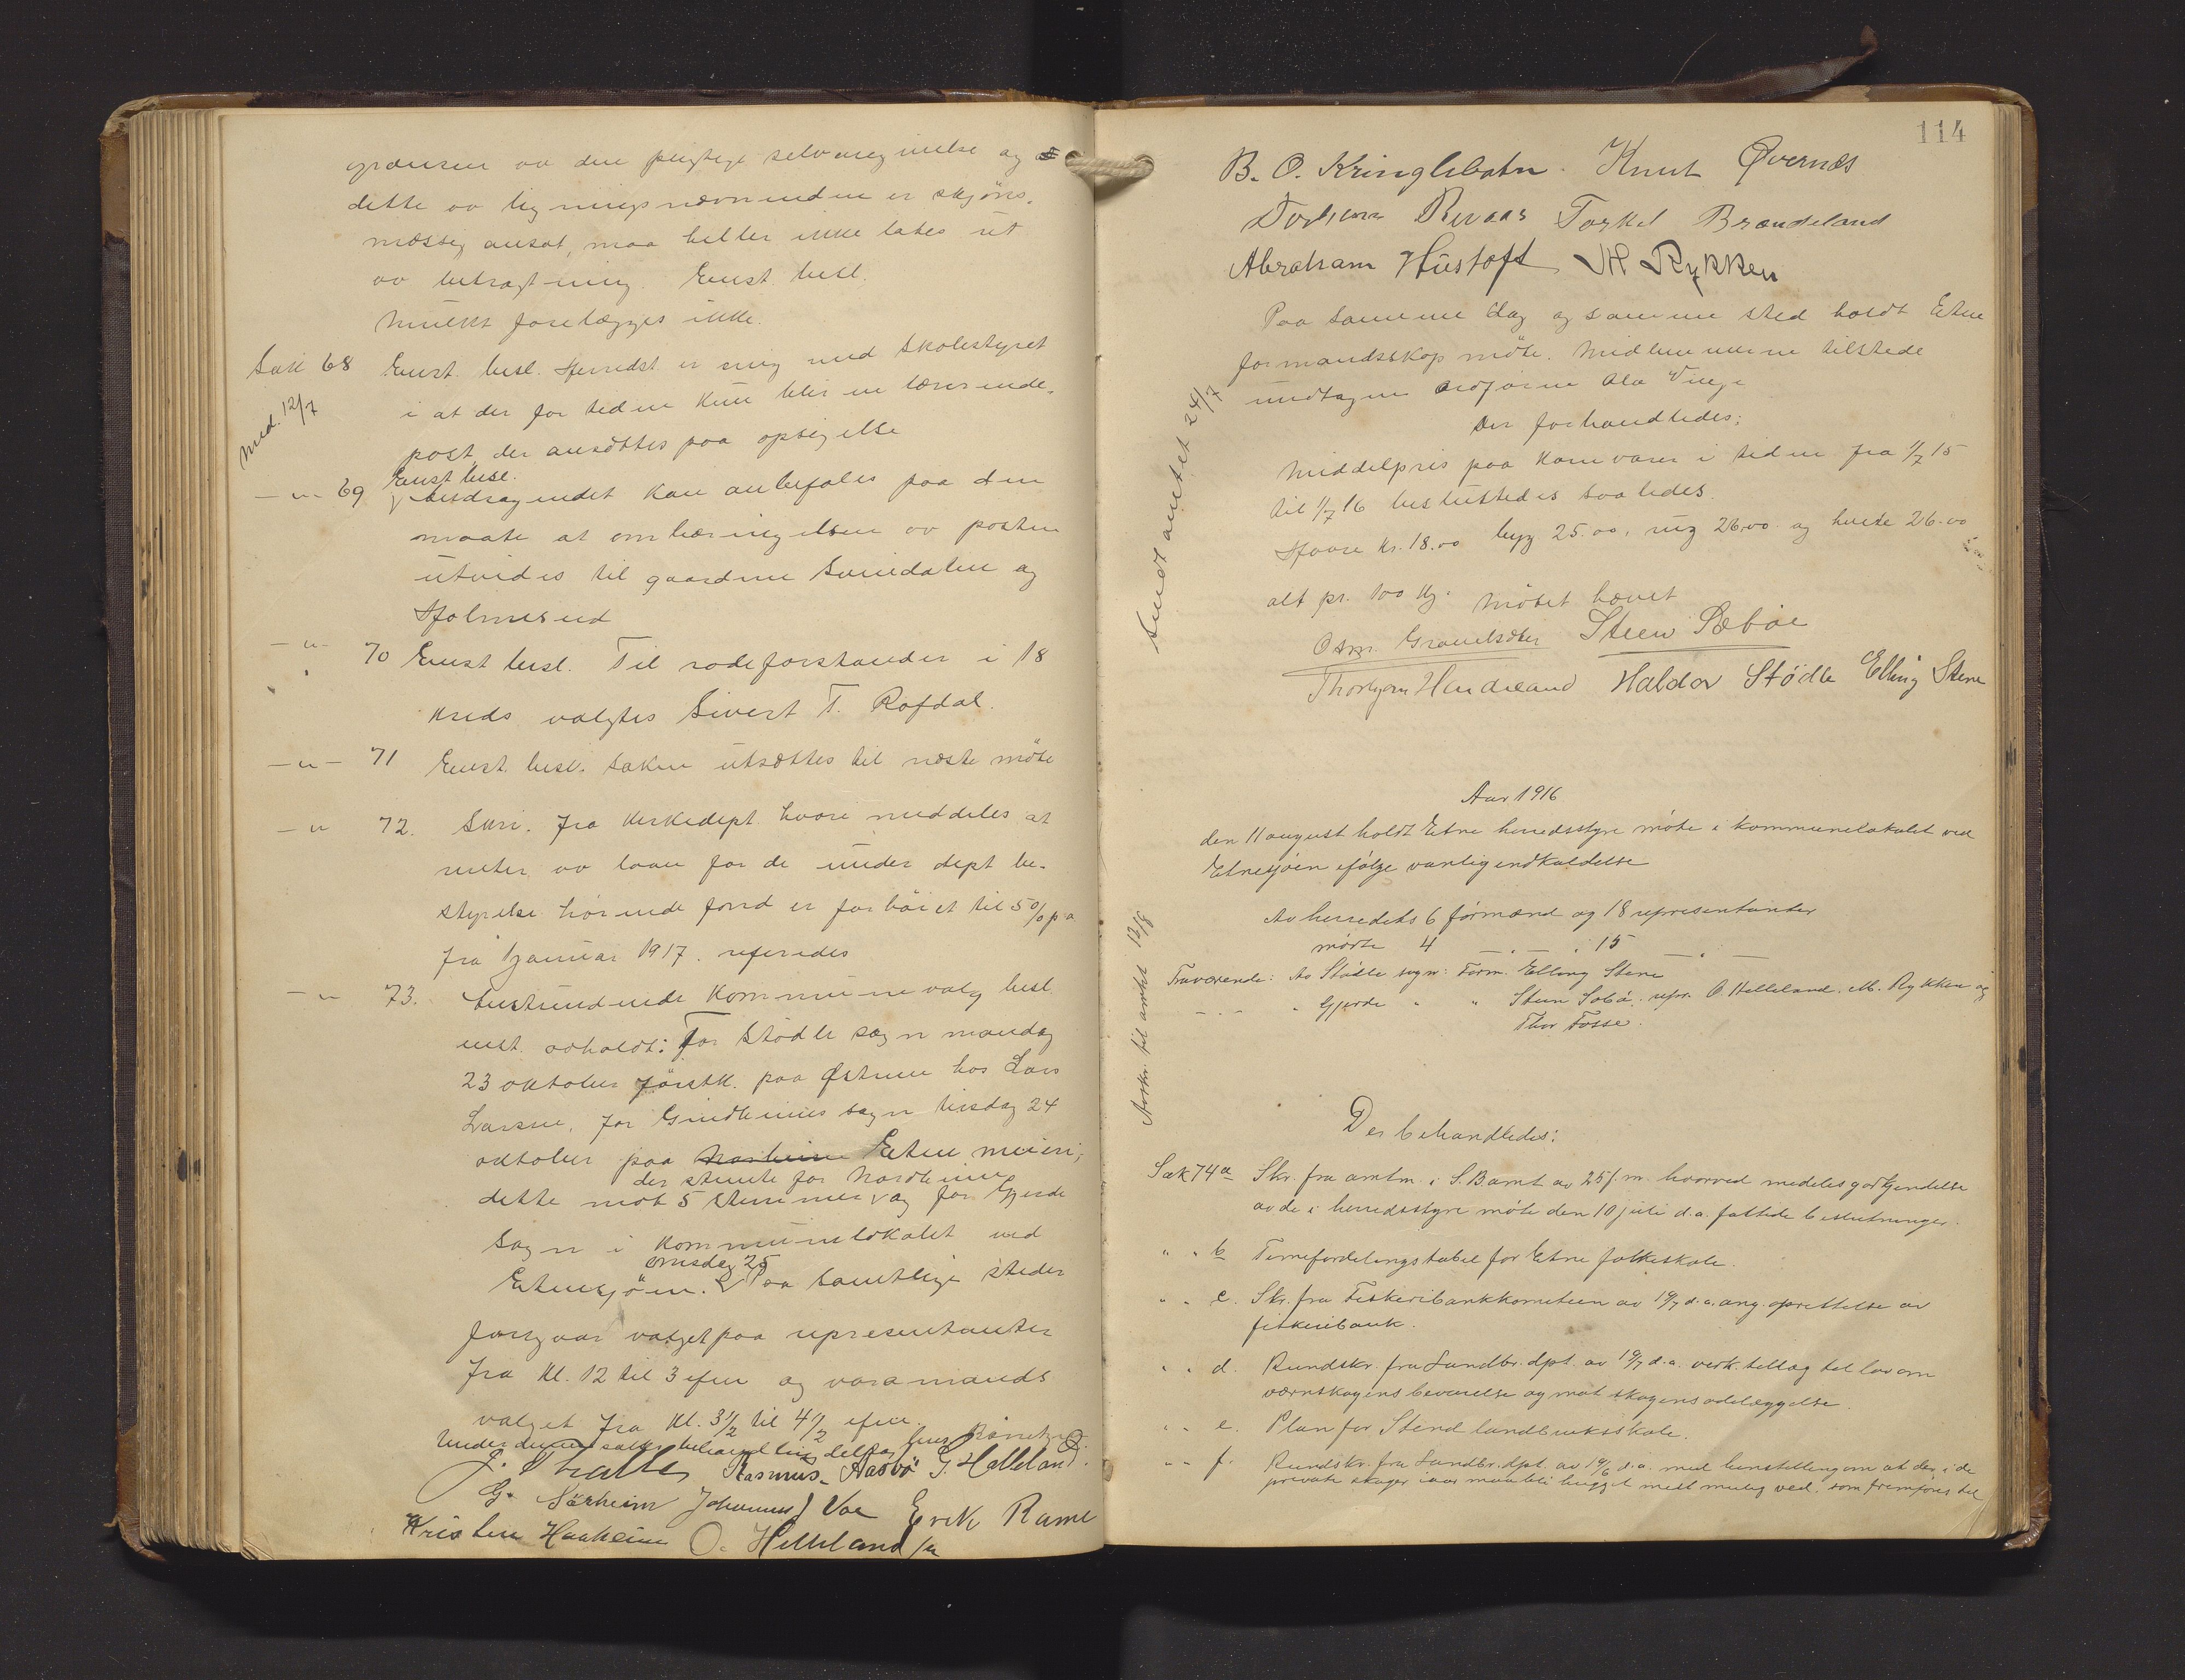 grænsen av den pligtige selvangivelse og
dette av ligningsnævnenden er skjøns-
mæssig ansat, maa heller ikke lates ut
av betragtning. Enst. besl.
Mulkt forelægges ikke.
Sak 68 Enst. besl. Herredst. er enig med skolestyret
i at der for tiden kun blir en lærerinde-
post, der ansættes paa opsigelse
Med. 12/7
Enst besl.
-"- 69 andragendet kan anbefales paa den
maate at ombæringelsen av posten
utvides til gaardene Svindalen og
Holmesud
-"- 70 Enst besl. Til rodeforstander i 18
kreds valgtes Sivert T. Rafdal.
-"- 71 Enst. besl. Saken utsættes til næste møte
-"- 72. Skri. fra Kirkedept. hvori meddeles at
renter av laan for de under dept be-
styrelse hørende fond er forhøiet til 5% p a
fra 1 januar 1917. referedes
-"- 73. Tilstundende kommunevalg besl.
enst. avholdt: For Stødle sogn mandag
23 oktober førstk. paa Østrem hos Lars
Larsen, for Grindheims sogn tirsdag 24
oktober paa Etne meieri;
der stemte for Nordheim
dette mot 5 stemmer, og for Gjerde
sogn i kommunelokalet ved
onsdag 25
Etnesjøen. Paa samtlige steder
foregaar valget paa representanter
fra kl. 12 til 3 efm og varamands
valget fra kl. 3½ til 4½ efm.
Under denne saks behandling deltog
Rasmus Aasbø G. Helleland.
G. Särheim Johannes J Vae Erik Rame
Kristen Haaheim O. Helleland
114
B. O. Kringlebotn. Knut Øvernæs
Torkel Brændeland
Abraham Hustoft M Rykken
Paa samme dag og samme sted holdt Etne
formandsskap møte. Medlemmerne tilstede
undtagen ordføren Ola Viige
Der forhandledes:
Middelpris paa kornvarer i tiden fra 1/7 15
til 1/7 16 besluttedes saaledes.
Havre kr. 18.00 byg 25.00, rug 26.00 og hvete 26.00
alt pr. 100 kg. Møtet hævet
Sendt amtet 24/7
Steen Sæbøe
Haldor Stødle Elling Stene
Aar 1916
den 11 august holdt Etne herredsstyre møte i kommunelokalet ved
Etnesjøen ifølge vanlig indkaldelse
Av herredets 6 formænd og 18 representanter
møtte 4 -"- 15 -"-
Fraværende: Av Stødle sogn: Form. Elling Stene
-"- " Gjerde " " Steen Sæbø. repr. O. Helleland. M. Rykken og
Thor Fosse.
Avskr. til amtet 12/8
Der behandledes:
Sak 74 a Skr. fra amtm. i S. B. amt av 25 f. m. hvorved medeles godkjendelse
av de i herredsstyre møte den 10 juli d. a. fattede beslutninger.
" " b Timefordelingstabel for Etne folkeskole.
" " c. Skr. fra Fiskeribankkomiteen av 19/7 d. a. ang. oprettelse av
fiskeribank.
" " d. Rundskr. fra Landbr. dpt. av 19/7 d. a. vedk. tillæg til lov om
værnskogens bevarelse og mot skogens ødelæggelse.
" " e. Plan for Stend landbruksskole.
" " f. Rundskr. fra Landbr. dpt. av 19/6 d. a. med henstilling om at der i de
private skoger iaar maa bli hugget mest mulig ved, som fremføres til